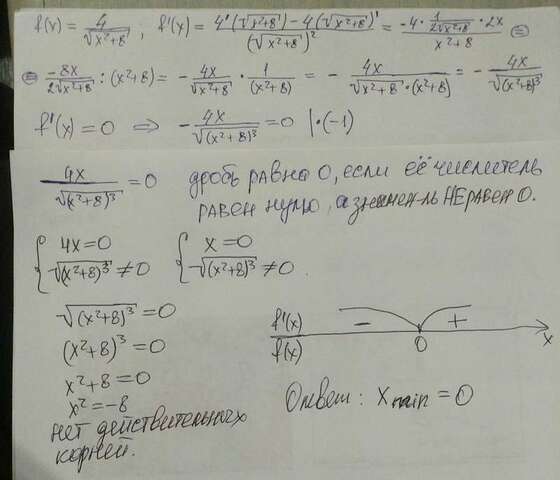 f(x) = 4/√(x²+8), f'(x) = (4'(√(x²+8)) − 4(√(x²+8))')/(√(x²+8))² = (−4 · 1/(2√(x²+8)) · 2x)/(x²+8) ⊜
⊜ −8x/(2√(x²+8)) : (x²+8) = − 4x/√(x²+8) · 1/(x²+8) = − 4x/(√(x²+8) · (x²+8)) = − 4x/√((x²+8)³)
f'(x) = 0 ⟹ − 4x/√((x²+8)³) = 0 |·(−1)
4x/√((x²+8)³) = 0 дробь равна 0, если её числитель
равен нулю, а знамен-ль НЕ равен 0.
{ 4x = 0 { x = 0
√((x²+8)³) ≠ 0 √((x²+8)³) ≠ 0.
√((x²+8)³) = 0
(x²+8)³ = 0
x²+8 = 0
x² = −8
нет действительных
корней.
f'(x) − +
f(x) 0 x
Ответ: x min = 0